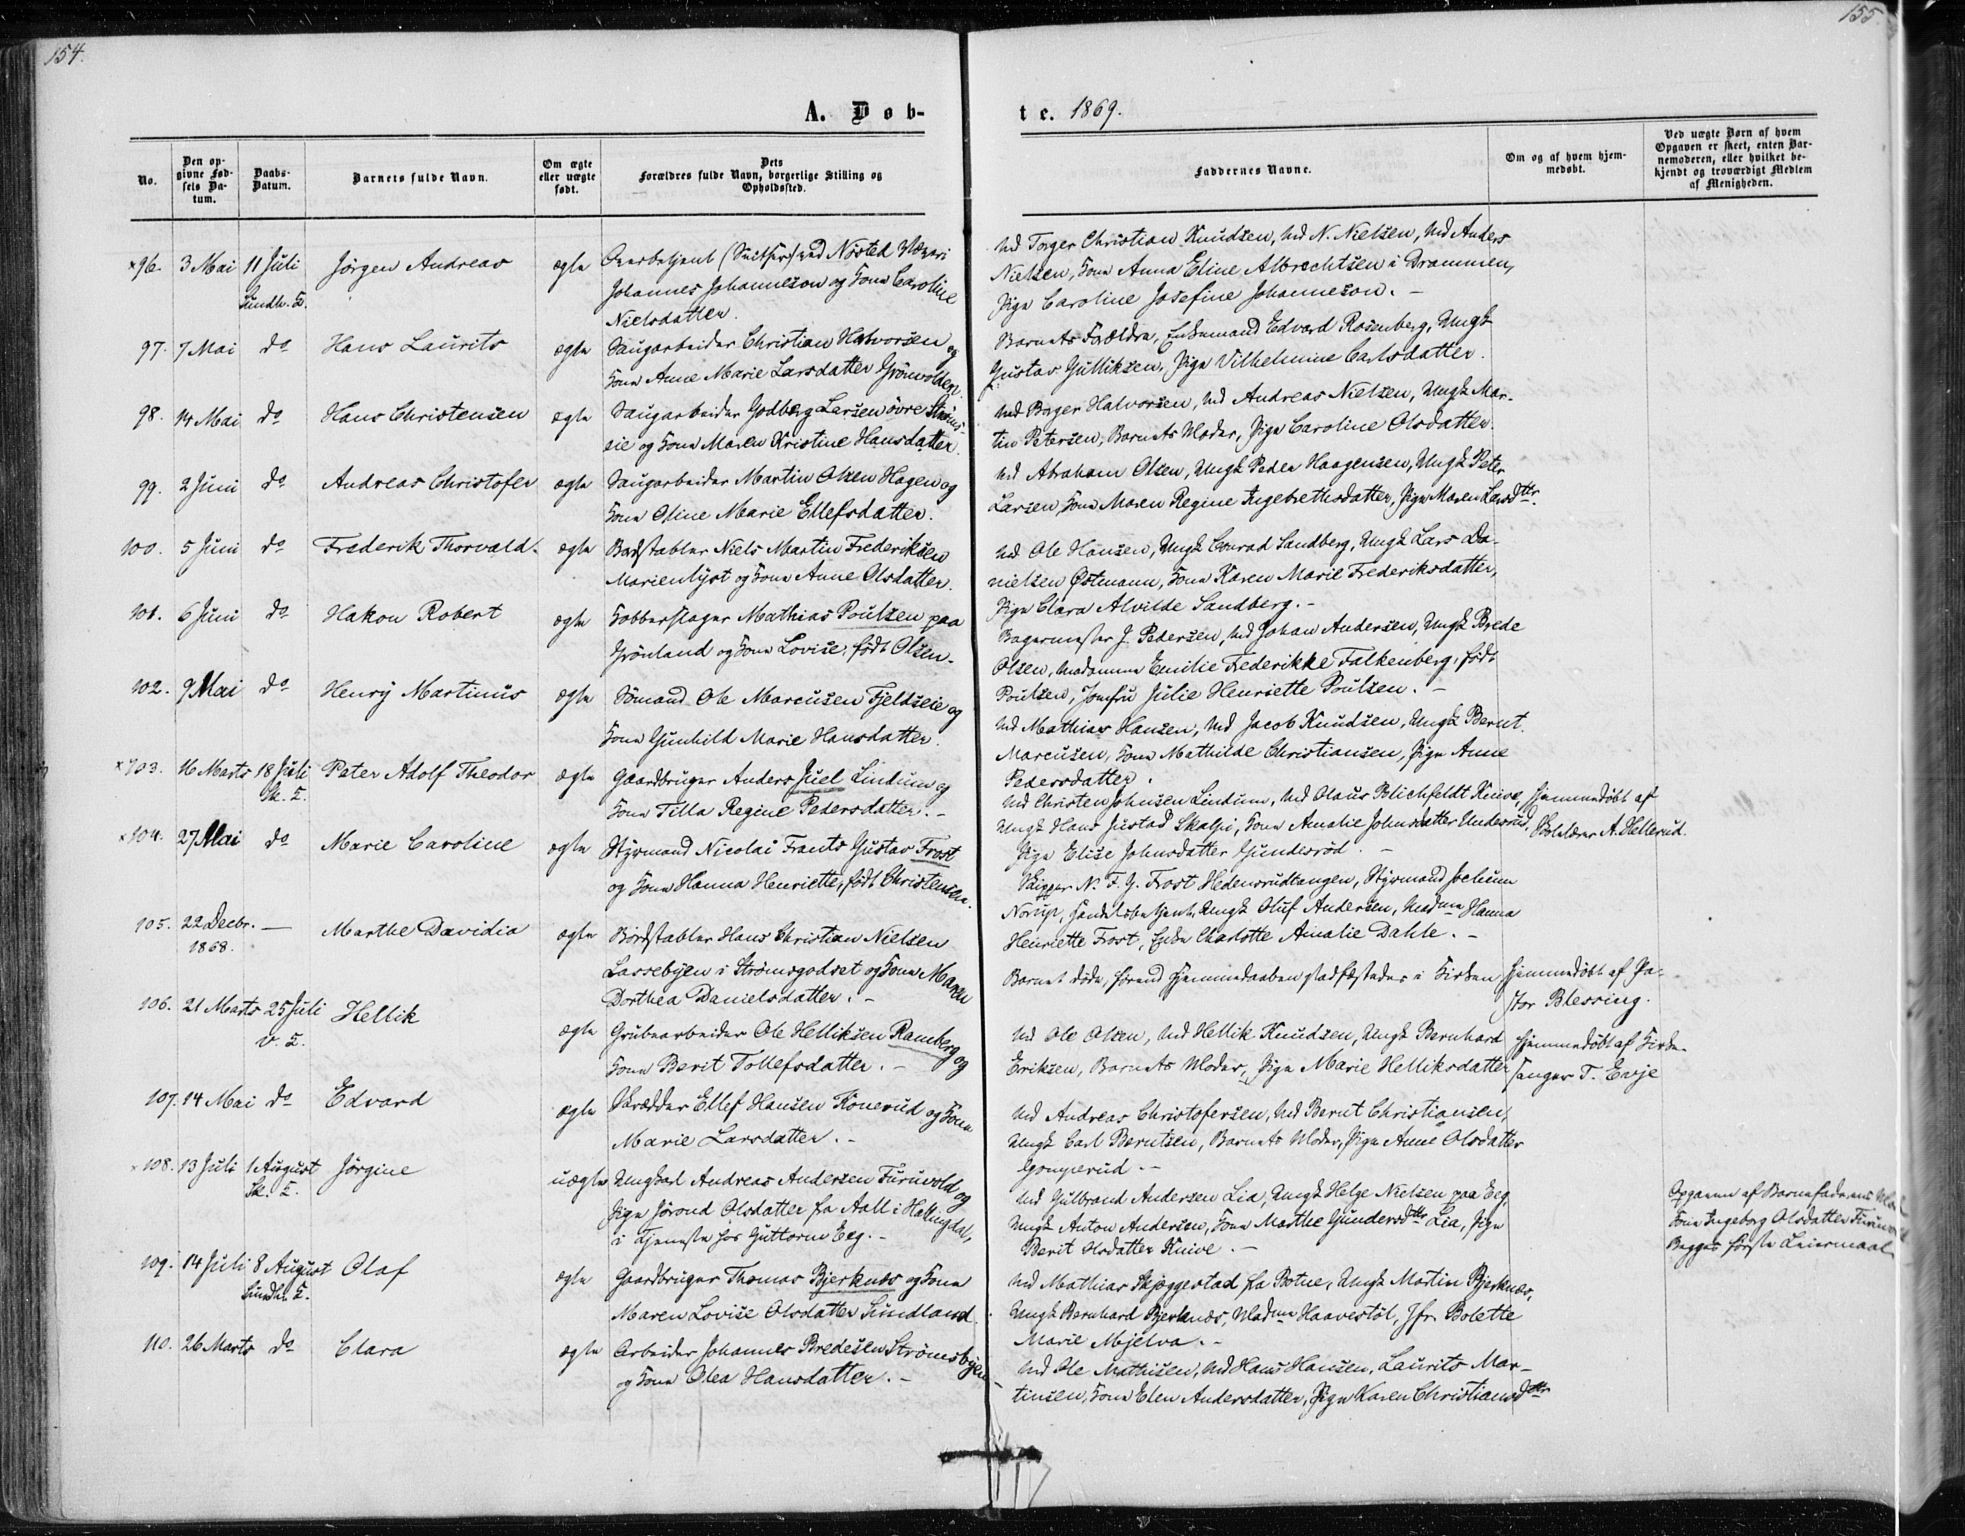 154.
155.
A. Døb-
te. 1869.
No.
Den op-
givne Fød-
sels Da-
tum.
Daabs-
Datum.
Barnets fulde Navn.
Om ægte
eller uægte
født.
Dets
Forældres fulde Navn, borgerlige Stilling og
Opholdssted.
Faddernes Navne.
Om og af hvem hjem-
medøbt.
Ved uægte Børn af hvem
Opgaven er skeet, enten Bar-
nemoderen, eller hvilket be-
kjendt og troværdigt Medlem
af Menigheden.
×96. 3 Mai 11 Juli Jörgen Andreas ægte
Sundh. K.
Johannes Johanneson og Kone Caroline
Nielsdatter.
Ud Torger Christian Knudsen, Ud N. Nielsen, Ud Anders
Nielsen, Kone Anna Eline Albrechtsen i Drammen,
Pige Caroline Josefine Johanneson. -
97. 7 Mai do Hans Laurits ægte Saugarbeider Christian Halvorsen og
Kone Anne Marie Larsdatter Grönvolden.
Barnets Forældre, Enkemand Edvard Rosenberg, Ungk
Gustav Gulliksen, Pige Vilhelmine Carlsdatter.
98. 14 Mai do Hans Christensen ægte Saugarbeider Godberg Larsen övre Ströms-
eie og Kone Maren Kristine Hansdatter.
Ud Borger Halvorsen, Ud Andreas Nielsen, Ungk Mar-
tin Petersen, Barnets Moder, Pige Caroline Olsdatter.
99. 2 Juni do Andreas Christofer ægte Saugarbeider Martin Olsen Hagen og
Kone Oline Marie Ellefsdatter.
Ud Abraham Olsen, Ungk Peder Haagensen, Ungk Peter
Larsen, Kone Maren Regine Ingebrethsdatter, Pige Maren Larsdtr.
100. 5 Juni do Frederik Thorvald. ægte Bordstabler Niels Martin Frederiksen
Marienlyst og Kone Anne Olsdatter.
Ud Ole Hansen, Ungk Conrad Sandberg, Ungk Lars Da-
nielsen Østmann, Kone Karen Marie Frederiksdatter,
Pige Clara Alvilde Sandberg. -
101. 6 Juni do Hakon Robert ægte Kobberslager Mathias Poulsen paa
Grönland og Kone Lovise, födt Olsen.
Bagermester J. Pedersen, Ud Johan Andersen, Ungk Brede
Olsen, Madamme Emilie Frederikke Falkenberg, födt
Poulsen, Jomfru Julie Henriette Poulsen. -
102. 9 Mai do Henry Martinus ægte Sömand Ole Marcusen Fjeldseie og
Kone Gunhild Marie Hansdatter.
Ud Mathias Hansen, Ud Jacob Knudsen, Ungk Bernt
Marcusen, Kone Mathilde Christiansen, Pige Anne
Pedersdatter.
×103. 16 Marts 18 Juli Peter Adolf Theodor ægte Gaardbruger Anders Juel Lindum og
Sk. K.
Kone Tilla Regine Pedersdatter. -
Ud Christen Johnsen Lindum, Ud Olaus Blichfeldt Knive,
Ungk Hans Justad Skalpi, Kone Amalie Johnsdatter Underrud,
Pige Elise Johnsdatter Gundesröd. -
Hjemmedøbt af
Skolelærer A. Hellerud.
×104. 27 Mai do Marie Caroline ægte Styrmand Nicolai Frants Gustav Frost
og Kone Hanna Henriette, födt Christensen.
Skipper N. F. G. Frost Hedensrudtangen, Styrmand Jochum
Norup, Handelsbetjent, Ungk Oluf Andersen, Madme Hanna
Henriette Frost, Enke Charlotte Amalie Dahle. -
105. 22 Decbr. - Marthe Davidia ægte Bordstabler Hans Christian Nielsen
1868.
Lassebyen i Strömsgodset og Kone Maren
Dorthea Danielsdatter. -
Barnet döde, förend Hjemmedaaben stadfæstedes i Kirken
Hjemmedöbt af Pa-
stor Blessing.
106. 21 Marts 25 Juli Hellik ægte Grubearbeider Ole Helliksen Ramberg og
V. K.
Kone Berit Tollefsdatter. -
Ud Ole Olsen, Ud Hellik Knudsen, Ungk Bernhard
Eriksen, Barnets Moder, Pige Marie Helliksdatter
Hjemmedöbt af Kirke-
sanger T. Eeje
107. 14 Mai do Edvard ægte Skrædder Ellef Hansen Konerud og Kone
Marie Larsdatter. -
Ud Andreas Christofersen, Ud Bernt Christiansen,
Ungk Carl Berntsen, Barnets Moder, Pige Anne Olsdatter
Gomperud. -
×108. 13 Juli 1 August Jörgine uægte Ungkarl Andreas Andersen Furuvold og
Sk. K.
Pige Jörond Olsdatter fra Aall i Hallingdal,
i Tjeneste hos Guttorm Eeg. -
Ud Gulbrand Andersen Lia, Ungk Helge Nielsen paa Eeg,
Ungk Anton Andersen, Kone Marthe Gundersdtr Lia, Pige
Berit Olsdatter Knive. -
Opgaven af Barnefaderens
Kone Ingeborg Olsdatter
Begges förste Leiermaal
109. 14 Juli 8 August Olaf ægte Gaardbruger Thomas Bjerknæs og Kone
Sundh. K.
Maren Lovise Olsdatter Sundland.
Ud Mathias Skjeggestad fra Botne, Ungk Martin Bjerknæs,
Ungk Bernhard Bjerknæs, Madme Haavestöl, Jfr. Bolette
Marie Mjelva. -
110. 26 Marts do Clara ægte Arbeider Johannes Bredesen Strömsbyen
og Kone Olea Hansdatter. -
Ud Ole Mathisen, Ud Hans Hansen, Laurits Mar-
tinsen, Kone Elen Andersdatter, Pige Karen Christiansdtr